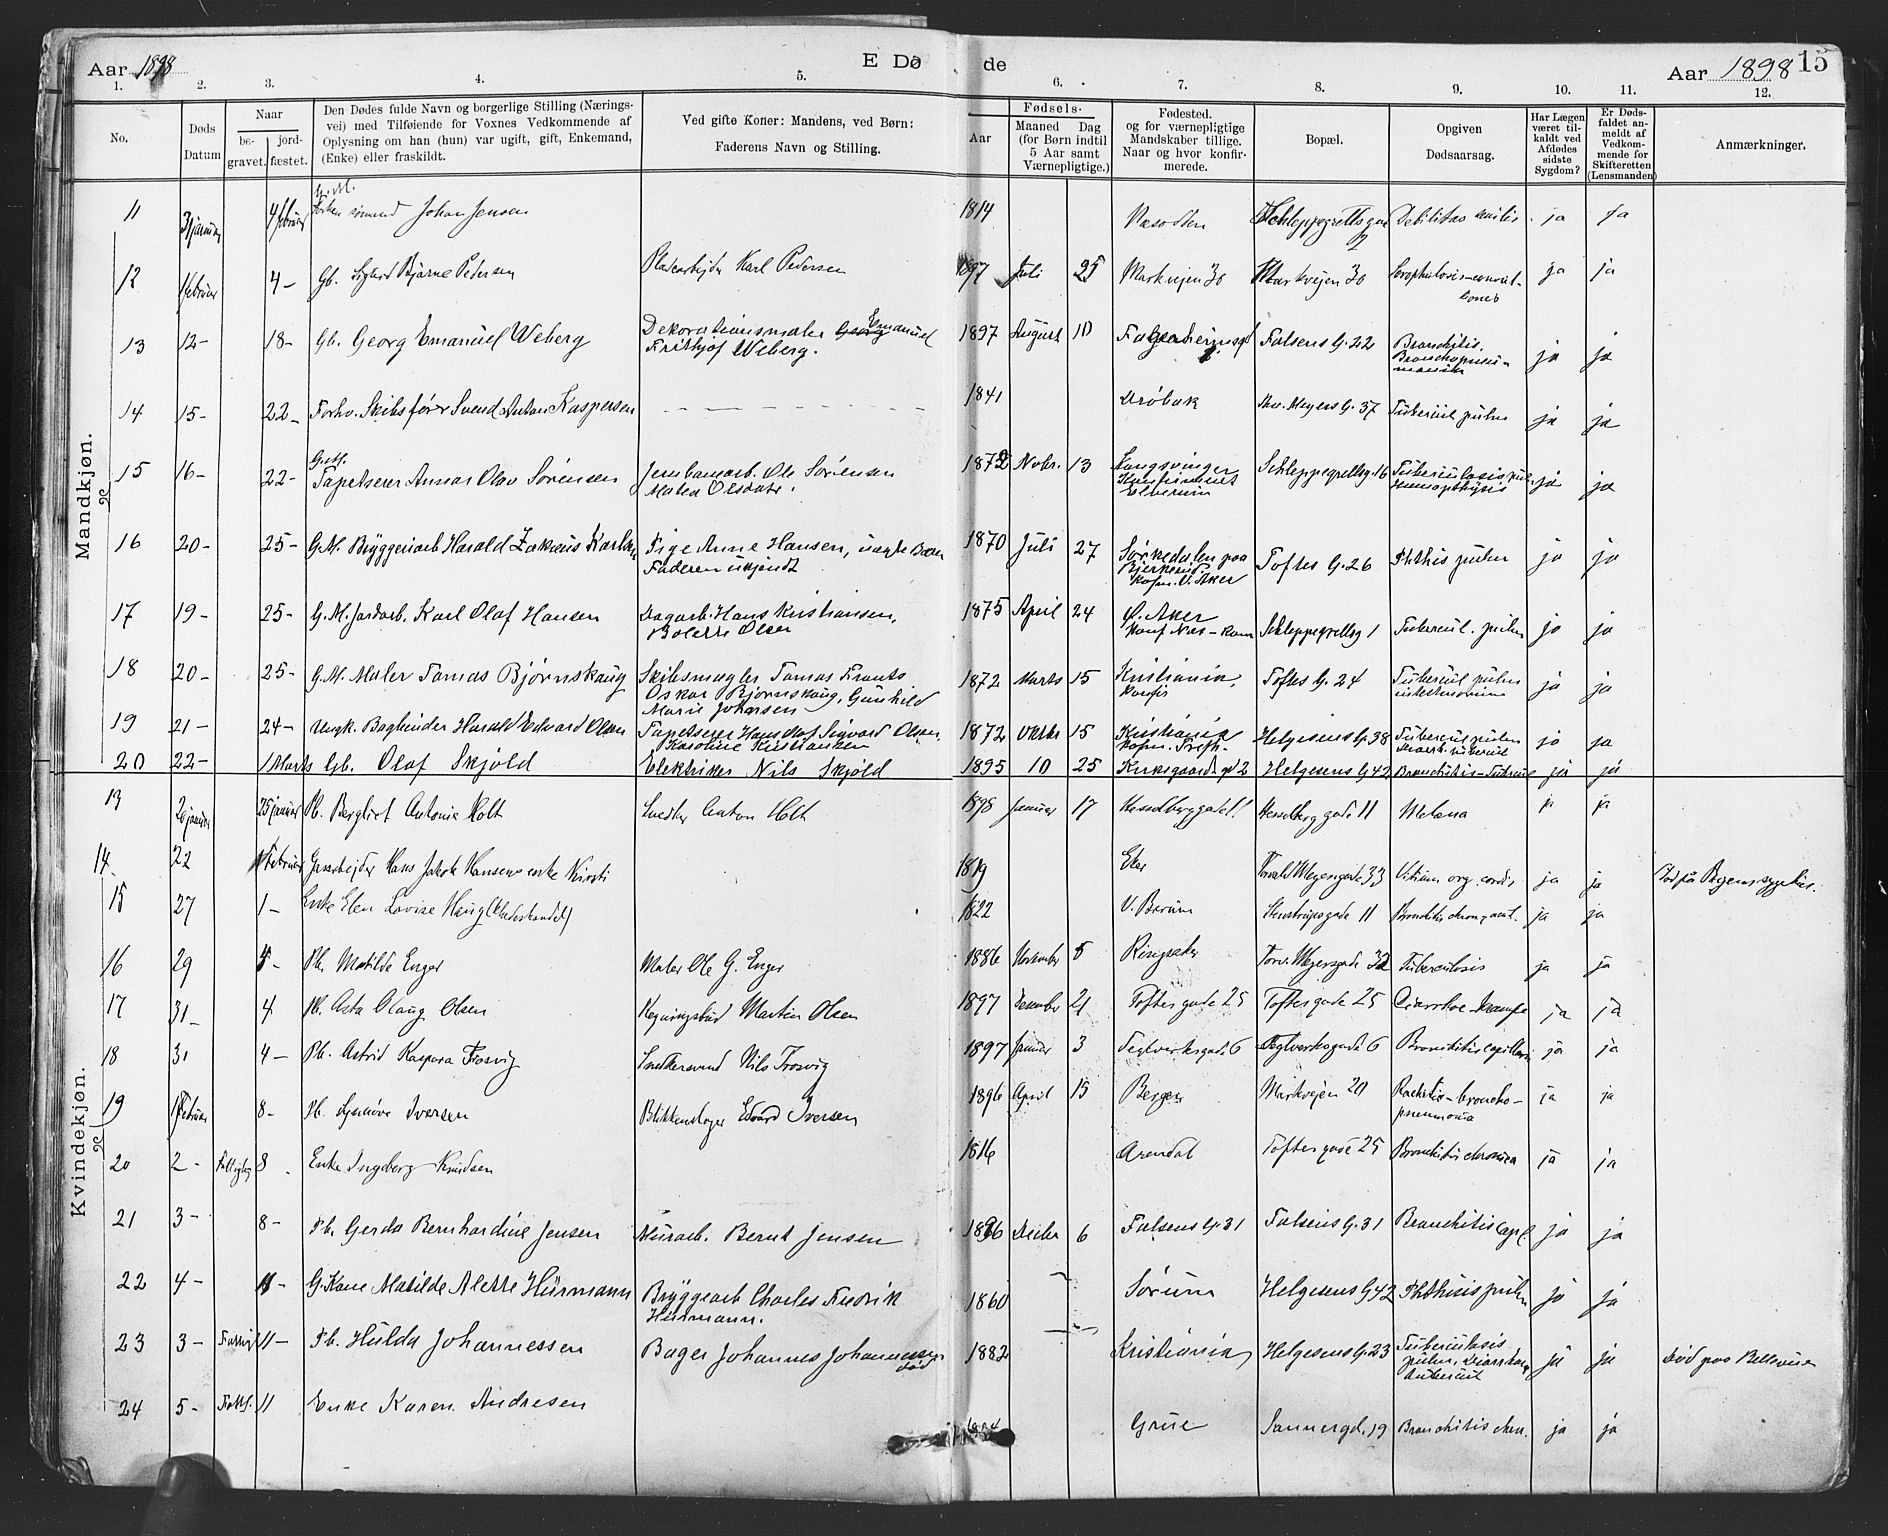 Aar 1898
E Dø
de
Aar 1898
15
1. 2. 3. 4. 5. 6. 7. 8. 9. 10. 11. 12.
No.
Døds
Datum
Naar
be-
gravet.
jord-
fæstet.
Den Dødes fulde Navn og borgerlige Stilling (Nærings-
vei) med Tilføiende for Voxnes Vedkommende af
Oplysning om han (hun) var ugift, gift, Enkemand,
(Enke) eller fraskildt.
Ved gifte Koner: Mandens, ved Børn:
Faderens Navn og Stilling.
Fødsels-
Aar
Maaned Dag
(for Børn indtil
5 Aar samt
Værnepligtige.)
Fødested.
og for værnepligtige
Mandskaber tillige.
Naar og hvor konfir-
merede.
Bopæl.
Opgiven
Dødsaarsag.
Har Lægen
været til-
kaldt ved
Afdødes
sidste
Sygdom?
Er Døds-
faldet an-
meldt af
Vedkom-
mende for
Skifteretten
(Lensmanden)
Anmærkninger.
Mandkjøn.
11 31 januar 4 februar G. M. Johan Jensen 1814 Nesodden Schleppegrells gade 2 Debilitas senilis ja ja
12 1 februar 4 – Gb. Sigurd Bjarne Pedersen Pladearbejder Karl Pedersen 1897 Juli 25 Markvejen 30 Markvejen 30 ja ja
13 12 – 18 – Gb. Georg Emanuel Weberg Dekorationsmaler Georg Emanuel
Frithjof Weberg. 1897 August 10 Falsens G. 22 Bronchitis.
Bronchopneu-
monia ja ja
14 15 – 22 – Forhv. Skibsfører Svend Anton Kaspersen 1841 Drøbak Thv. Meyers G. 37 Tubercul pulm ja ja
15 16 – 22 – G. M.
Tapetserer Annar Olav Sørensen Jernbanearb. Ole Sørensen
Malea Olsdatr. 1872 Novbr. 13 Kongsvinger
Elverum Schleppegrellsg. 16 Tuberculosis pulm
Hæmopthysis ja ja
16 20 – 25 – G. M. Bryggeriarb Harald Zakæus Karlsen Pige Anne Hansen,
Faderen ukjendt 1870 Juli 27 Sørkedalen paa
Bjerkerud.
Kofm. V. Aker Toftes G. 26 Phthis pulm ja ja
17 19 – 25 – G. M. Jordarb. Karl Olaf Hansen Dagarb. Hans Kristiansen,
Bolette Olsen 1875 April 24 Ø. Aker Schleppegrellsg 1 Tubercul. pulm ja ja
18 20 – 25 – G. M. Maler Tomas Bjørnskaug Skibsmægler Tomas Frants
Oskar Bjørnskaug, Gunhild
Marie Johansen 1872 Marts 15 Kristiania, Toftes G. 24 Tubercul pulm
intestinorum ja ja
19 21 – 24 – Ungk. Bogbinder Harald Edvard Olsen Tapetserer Hans Olaf Sigvard Olsen,
Karoline Kristiansen 1872 15 Kristiania Helgesens G. 38 Tubercul pulm ja ja
20 22 – 1 Marts Gb. Olaf Skjold Elektriker Nils Skjold 1895 10 25 Kirkegaards gd 2 Helgesens G 42 Bronchitis – Tubercul ja ja
Kvindekjøn.
13 20 januar 25 januar Pb. Bergliot Antonie Holt Snedker Anton Holt 1898 Januar 17 Hesselberggade 11 Hesselberg gade 11 Melæna ja ja
14 22 1 Februar Gasarbejder Hans Jakob Hansens enke Kirsti 1819 Eker Torvald Meyers gade 33 Vitium org. cordis ja ja
15 27 1 – Enke Elen Lovise Haug 1822 V. Bærum 11 ja ja
16 29 5 – Pb. Matilde Enger Maler Ole G. Enger 1886 November 5 Ringsaker Torv. Meyersgade 32 Tuberculosis ja ja
17 31 – 4 Pb. Asta Olaug Olsen Regningsbud Martin Olsen 1897 December 21 Toftes gade 25 Toftes gade 25 Diarrhoe – Krampe ja ja
18 31 4 – Pb. Astrid Kaspara Frosvig Snedkersvend Nils Frosvig 1897 Januar 3 Teglverksgade 6 Teglverksgade 6 Bronchitis capillaris ja ja
19 1 Februar 8 – Pb. Synnøve Iversen Blikkenslager Edvard Iversen 1896 April 15 Bergen Markvejen 20 Rachitis – broncho –
pneumonia ja ja
20 2 – 8 Enke Ingeborg Knudsen 1816 Arendal Toftes gade 25 Bronchitis chronica ja ja
21 3 – 8 – Pb. Gerda Bernhardine Jensen Murarb. Bernt Jensen 1896 Decbr 6 Falsens G. 31 Falsens G. 31 Bronchitis capil ja ja
22 4 – 11 – G. Kone Matilde Alette Hürmann Bryggearb Charles Fredrik
Hürmann. 1860 Sørum Helgesens G 42 Phthisis pulm ja ja
23 3 – 11 – Pb. Hulda Johannessen Bager Johannes Johannessen
død 1882 Kristiania Helgesens G. 23 Tuberculosis
pulm, ja ja Død paa Bellevue
24 5 – 11 Enke Karen Andresen Grue Sannergd. 19 Bronchitis chron. ja ja